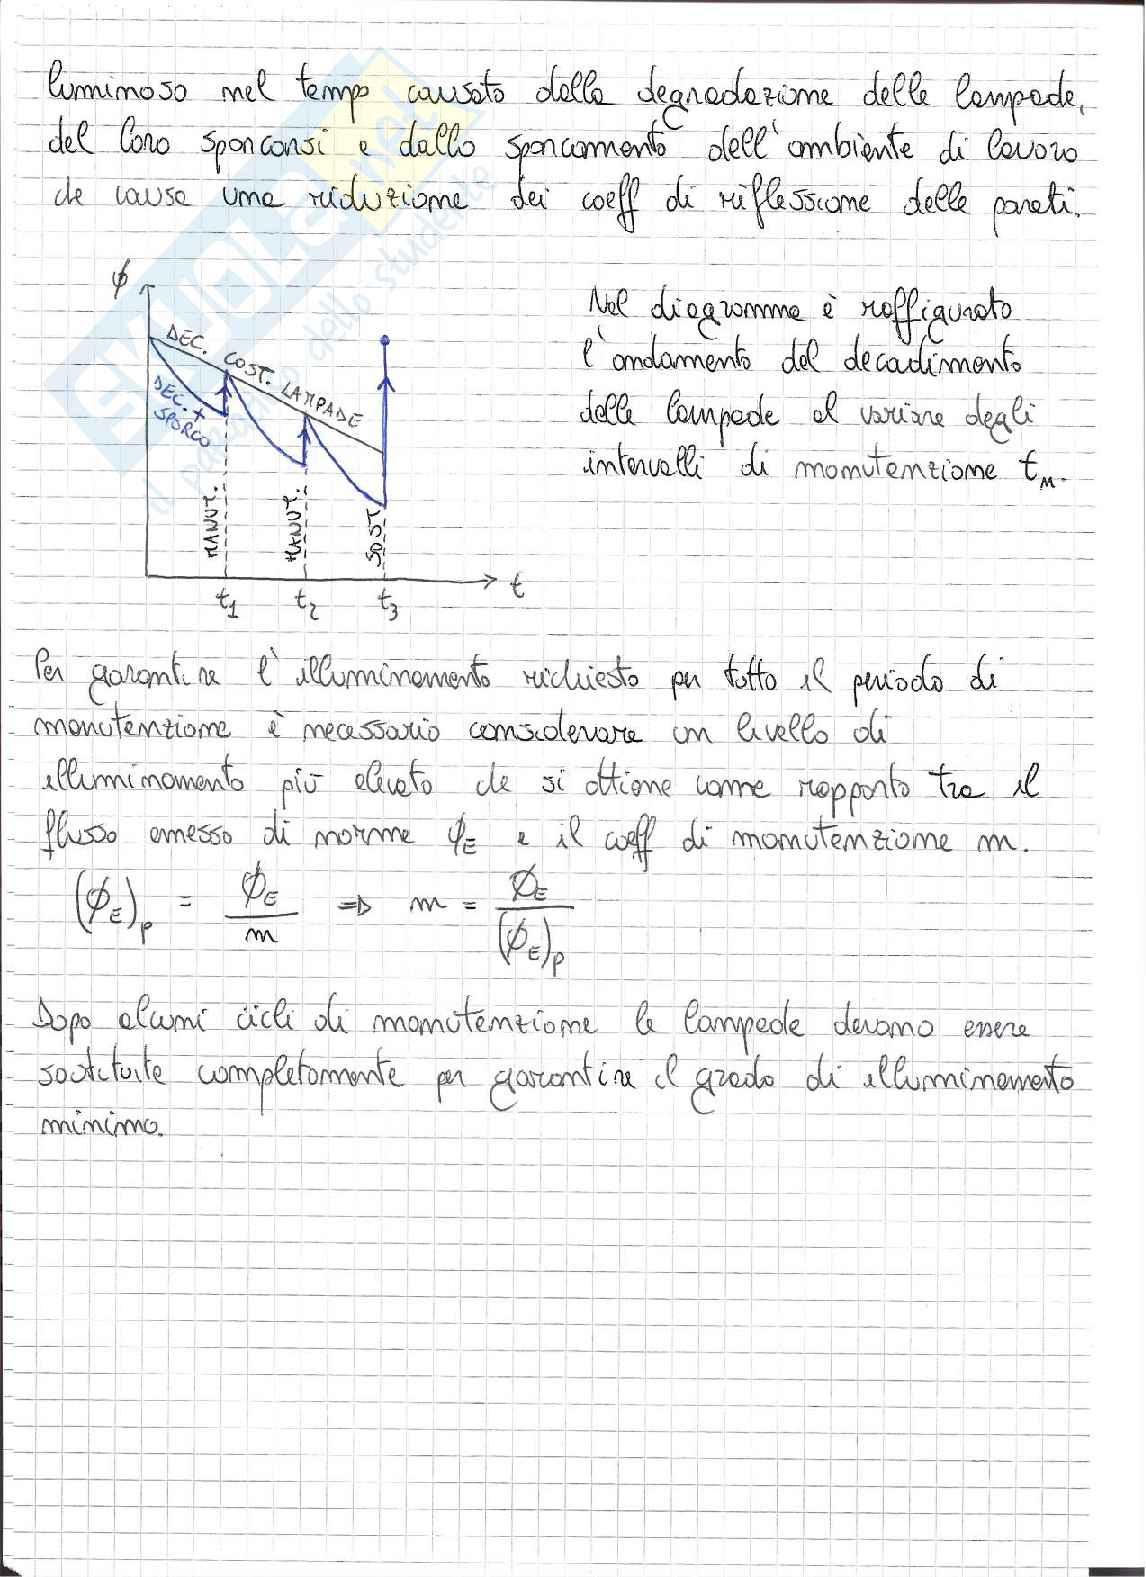 luminoso nel tempo causato dalla degradazione delle lampade,
del loro sporcarsi e dallo sporcamento dell'ambiente di lavoro
che causa una riduzione dei coeff di riflessione delle pareti.
ϕ
DEC. COST. LAMPADE
DEC. +
SPORCO
MANUT.
MANUT.
SOST
t
t1
t2
t3
Nel diagramma è raffigurato
l'andamento del decadimento
delle lampade al variare degli
intervalli di manutenzione tM.
Per garantire l'illuminamento richiesto per tutto il periodo di
manutenzione è necessario considerare un livello di
illuminamento più elevato che si ottiene come rapporto tra il
flusso emesso di norma ϕE e il coeff di manutenzione m.
(ϕE)p = ϕE / m ⇒ m = ϕE / (ϕE)p
Dopo alcuni cicli di manutenzione le lampade devono essere
sostituite completamente per garantire il grado di illuminamento
minimo.
SKUOLA.net
il paradiso dello studente